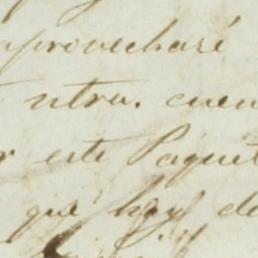 aprovecharé
ntra. cuen
este Paquet
que hay de